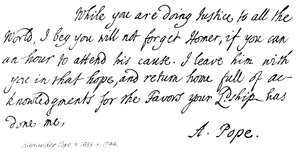 While you are doing Justice to all the
World, I beg you will not forget Homer, if you can
an hour to attend his cause. I leave him with
you in that hope, and return home full of ac-
knowledgments for the Favors your Ldship has
done me.
A. Pope.
Alexander Pope b. 1688 d. 1744.